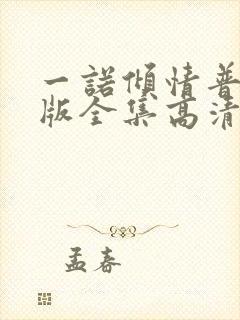 一诺倾情普
版全集高清
孟春